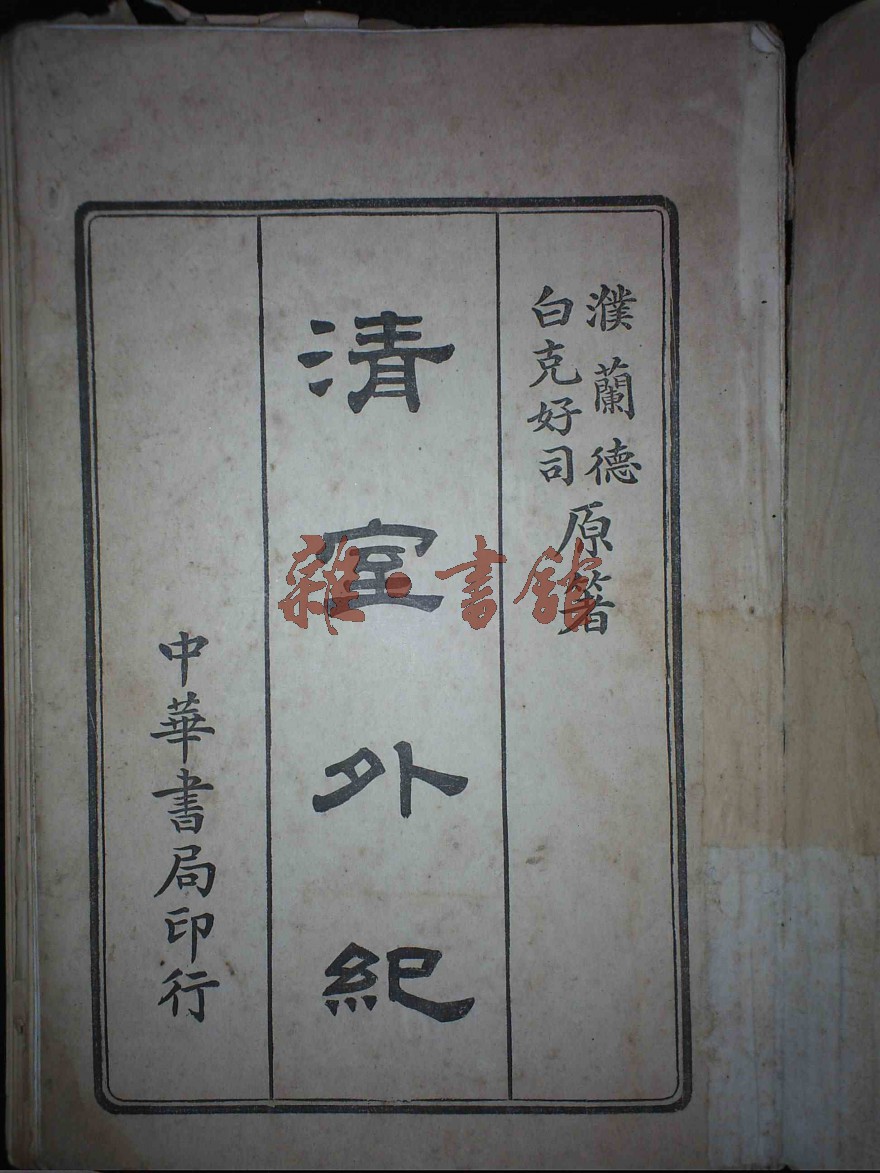 濮蘭德
白克好司
原著
清室外紀
中華書局印行
雜·書館